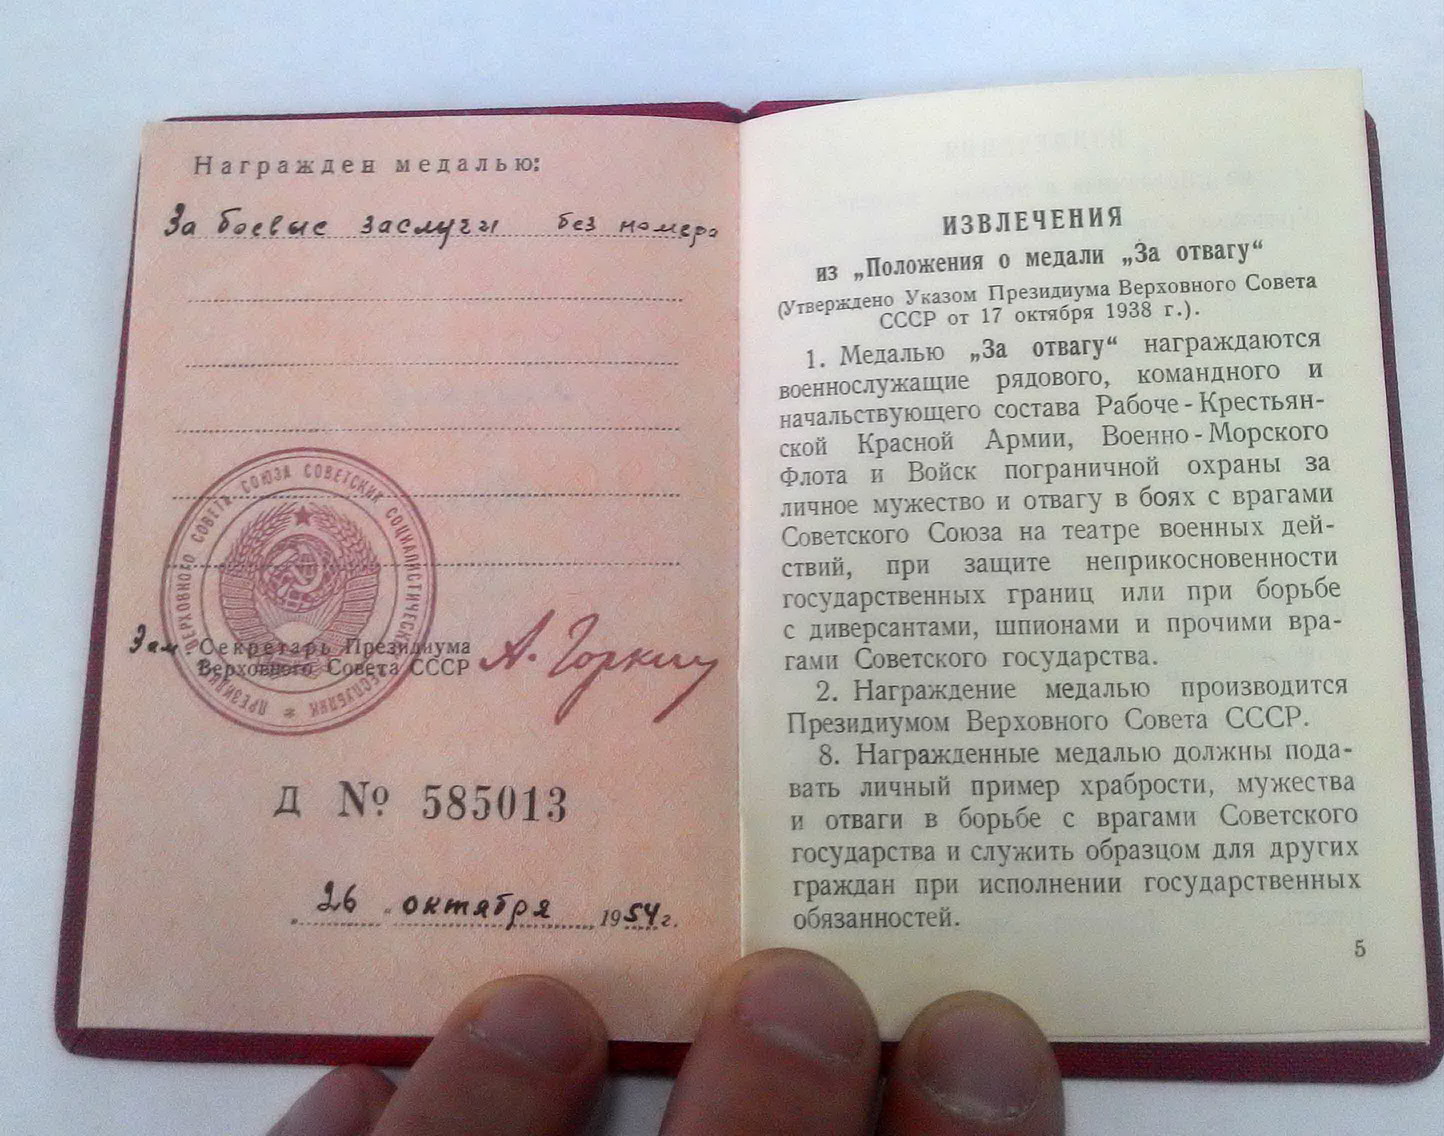 Награжден медалью:
За боевые заслуги без номера
ПРЕЗИДИУМ ВЕРХОВНОГО СОВЕТА СОЮЗА СОВЕТСКИХ СОЦИАЛИСТИЧЕСКИХ РЕСПУБЛИК *
Зам. Секретарь Президиума
Верховного Совета СССР
А. Горкин
Д № 585013
„ 26 “ октября 1954 г.
ИЗВЛЕЧЕНИЯ
из „Положения о медали „За отвагу“
(Утверждено Указом Президиума Верховного Совета
СССР от 17 октября 1938 г.).
1. Медалью „За отвагу“ награждаются
военнослужащие рядового, командного и
начальствующего состава Рабоче-Крестьян-
ской Красной Армии, Военно-Морского
Флота и Войск пограничной охраны за
личное мужество и отвагу в боях с врагами
Советского Союза на театре военных дей-
ствий, при защите неприкосновенности
государственных границ или при борьбе
с диверсантами, шпионами и прочими вра-
гами Советского государства.
2. Награждение медалью производится
Президиумом Верховного Совета СССР.
8. Награжденные медалью должны пода-
вать личный пример храбрости, мужества
и отваги в борьбе с врагами Советского
государства и служить образцом для других
граждан при исполнении государственных
обязанностей.
5